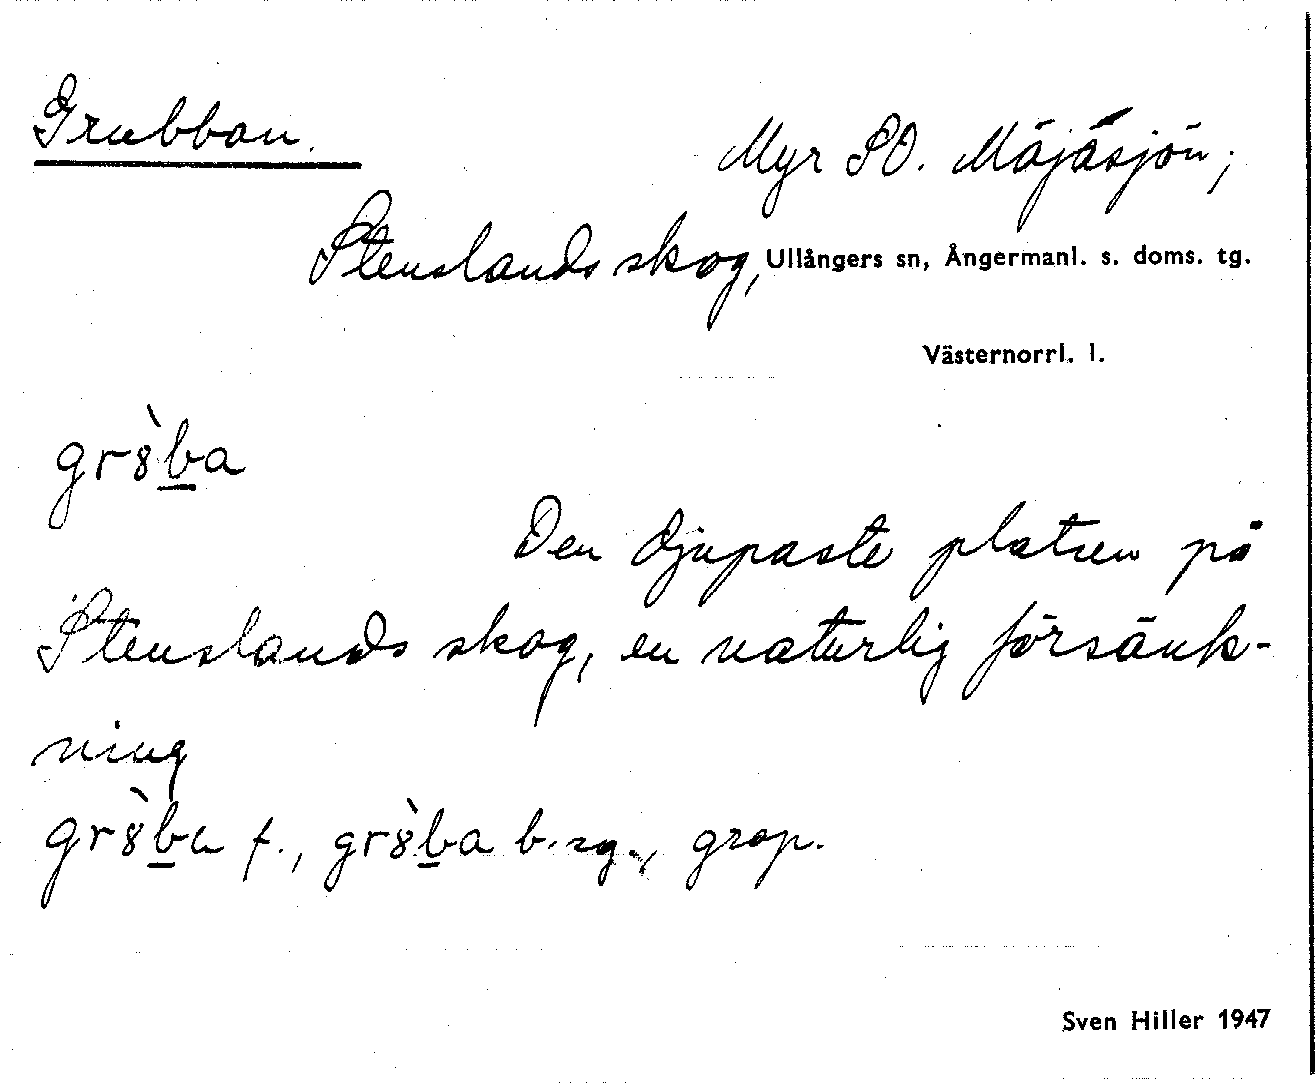 Grubban.
Myr SO. Möjåsjön;
Stenslands skog, Ullångers sn, Ångermanl. s. doms. tg.
Västernorrl. l.
gr8̀b̲a
Den djupaste platsen på
Stenslands skog, en naturlig försänk-
ning
gr8̀b̲a f., gr8̀b̲a b. sg., grop.
Sven Hiller 1947